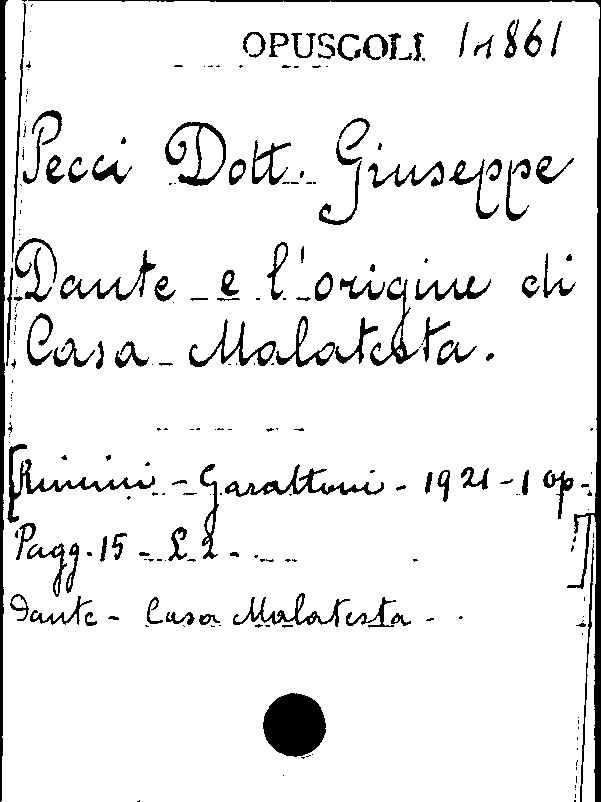 OPUSCOLI 11861
Pecci Dott. Giuseppe
Dante e l'origine di
Casa Malatesta.
[Rimini - Garattoni - 1921 - 1 op -
Pagg. 15 - L 2 - ]
Dante - Casa Malatesta -